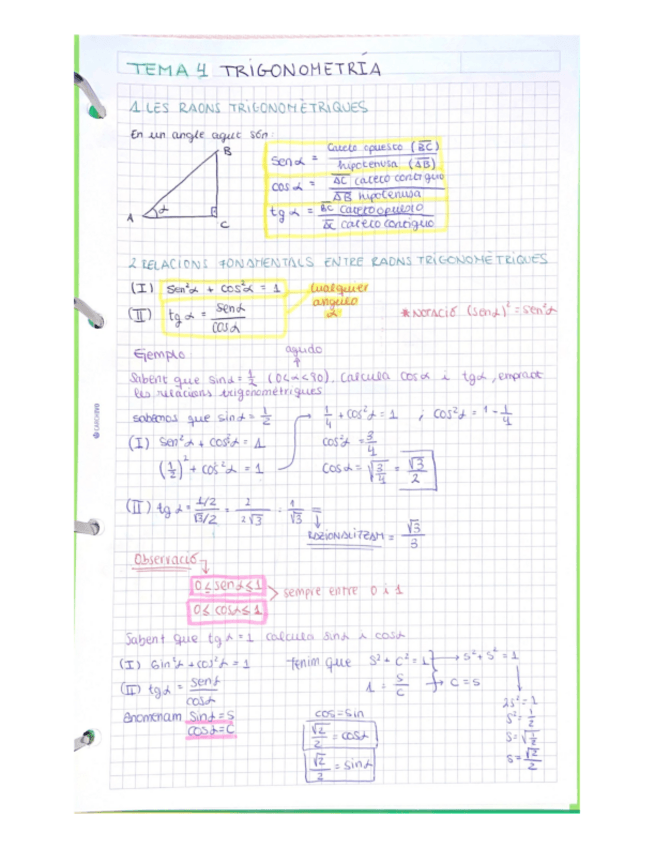 TEMA 4 TRIGONOMETRÍA
1 LES RAONS TRIGONOMÈTRIQUES
En un angle agut són:
B
A α C
sen α = Cateto opuesto (BC) / hipotenusa (AB)
cos α = AC cateto contiguo / AB hipotenusa
tg α = BC cateto opuesto / AC cateto contiguo
2 RELACIONS FONAMENTALS ENTRE RAONS TRIGONOMÈTRIQUES
(I) sen²α + cos²α = 1
(II) tg α = senα / cosα
cualquier
angulo
α
*NOTACIÓ (senα)² = sen²α
Ejemplo
agudo
Sabent que sinα = 1/2 (0<α<90). Calcula cosα i tgα, emprant
les relacions trigonomètriques
sabemos que sinα = 1/2
(I) Sen²α + cos²α = 1
(1/2)² + cos²α = 1
→ 1/4 + cos²α = 1 ; cos²α = 1 - 1/4
cos²α = 3/4
cosα = √3/4 = √3/2
(II) tg α = 1/2 / √3/2 = 2 / 2√3 = 1/√3 =
RAZIONALITZAM = √3/3
Observació
0 ≤ senα ≤ 1
0 ≤ cosα ≤ 1
sempre entre 0 i 1
Sabent que tgα = 1 calcula sinα i cosα
(I) Sin²α + cos²α = 1
(II) tgα = senα / cosα
Anomenam Sinα = S
cosα = C
Tenim que S² + C² = 1 → S² + S² = 1
1 = S/C → C = S
2S² = 1
S² = 1/2
S = √1/2
S = √2/2
cos = sin
√2/2 = cosα
√2/2 = sinα